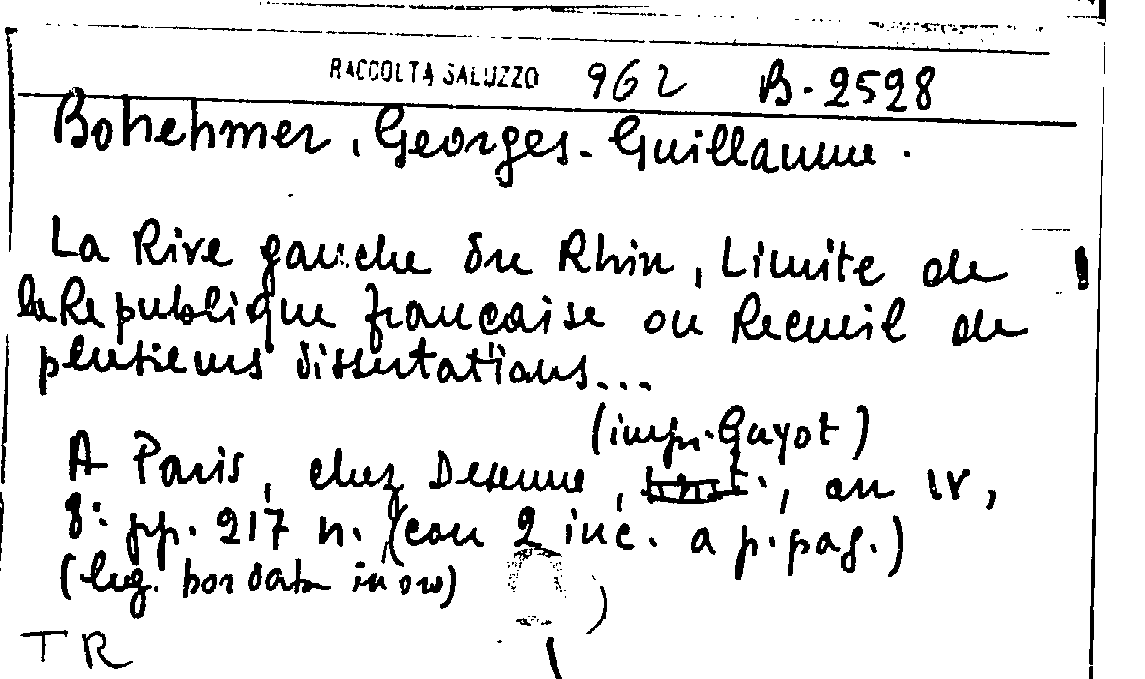 RACCOLTA SALUZZO 962 B-2528
Bohehmer, Georges-Guillaume.
La Rive gauche du Rhin, Limite de
la Republique française ou Recueil de
plusieurs dissertations...
(impr. Gayot)
A Paris, chez Desenne, an IV,
8° pp. 217 n. (con 2 inc. a p. pag.)
(leg. bordata in oro)
TR